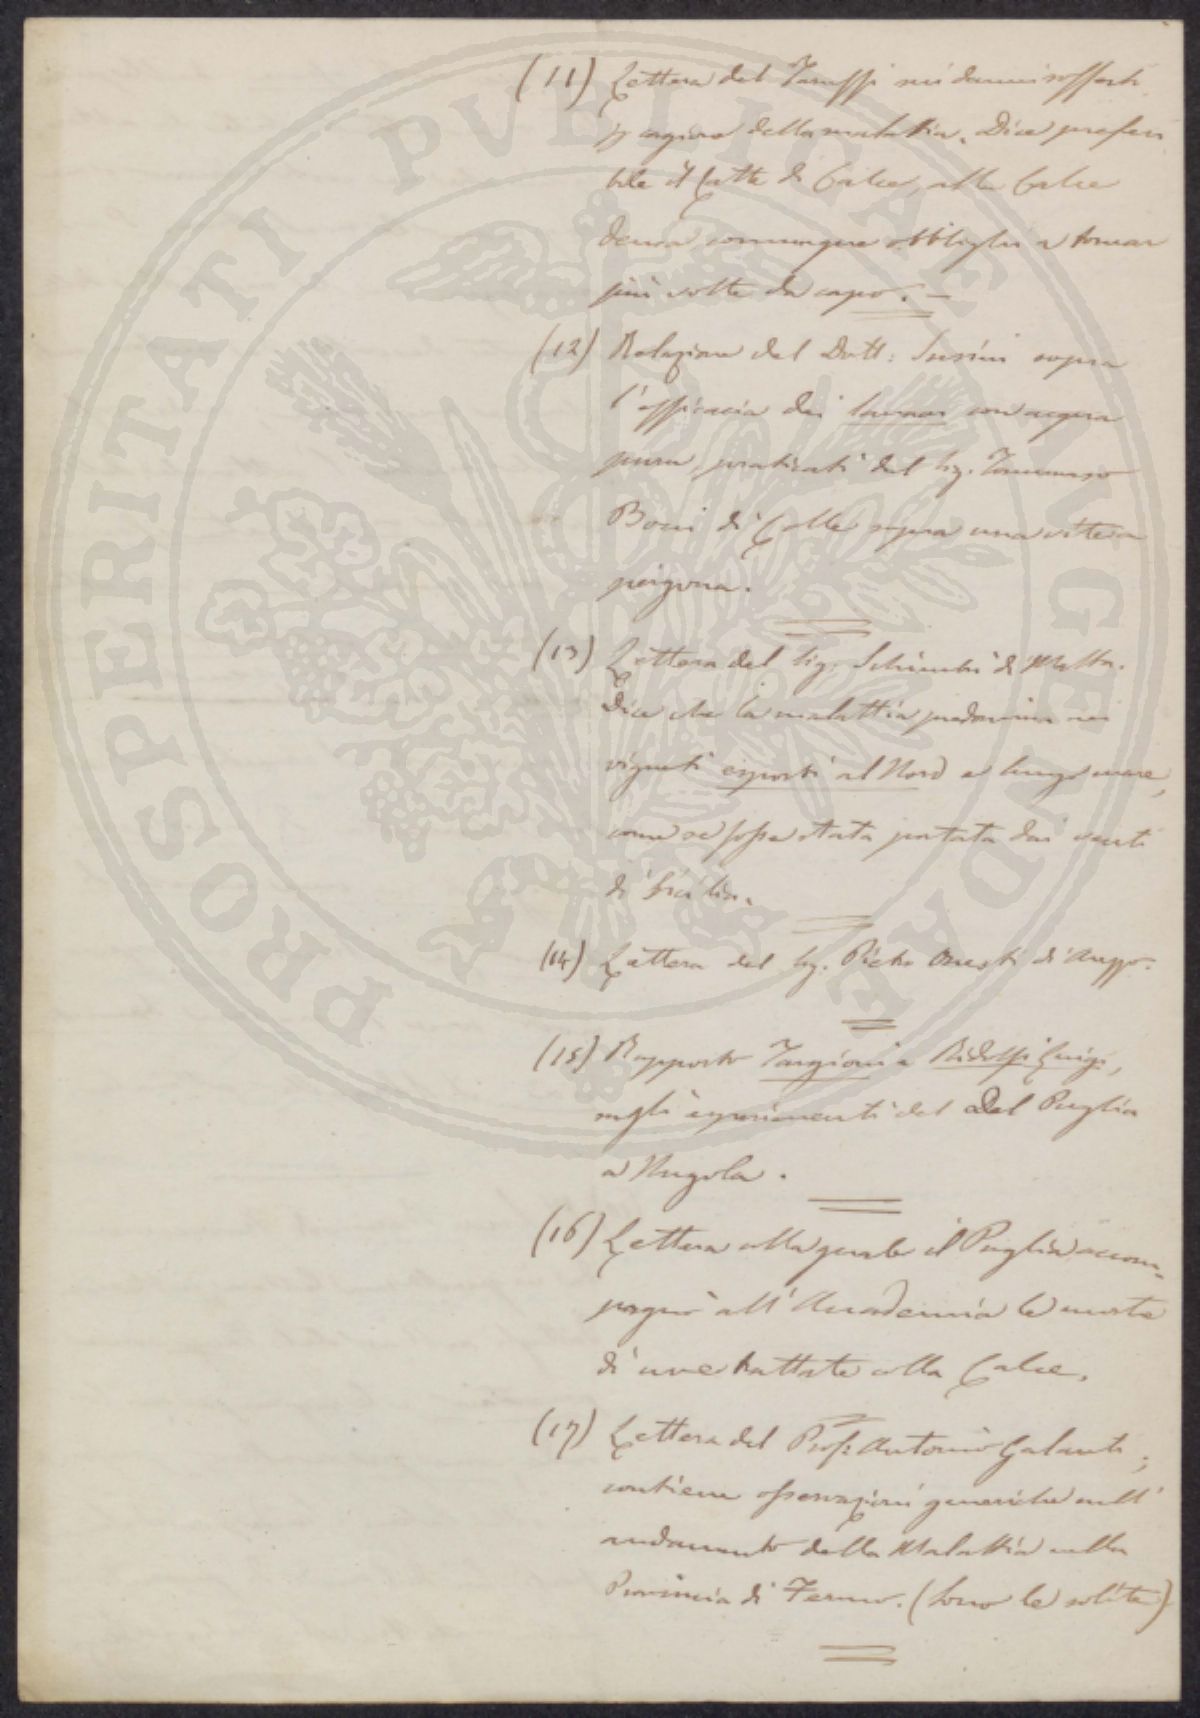 (11) Lettera del Taruffi sui danni sofferti
p cagione della malattia. Dice preferi
bile il Latte di Calce, alla Calce
densa comunque obblighi a tornar
più volte da capo. —
(12) Relazione del Dott: Susini sopra
l'efficacia dei lavacri con acqua
pura, praticati dal Sig. Tommaso
Boni di Colle sopra una vite a
pergona.
(13) Lettera del Sig. Schembri di Malta.
Dice che la malattia predomina nei
vigneti esposti al Nord e lungo mare,
come se fosse stata portata dai venti
di Sicilia.
(14) Lettera del Sig. Pietro Onesti di
(15) Rapporto Targioni e Ridolfi Luigi,
sugli esperimenti del Del Puglia
a Nugola.
(16) Lettera colla quale il Puglia accom-
pagnò all'Accademia le mostre
di uve trattate colla Calce.
(17) Lettera del Prof: Antonio Galanti;
contiene osservazioni generiche sull'
andamento della Malattia nella
Provincia di Fermo. (Sono le solite)
PROSPERITATI PVBLICAE AVGENDAE